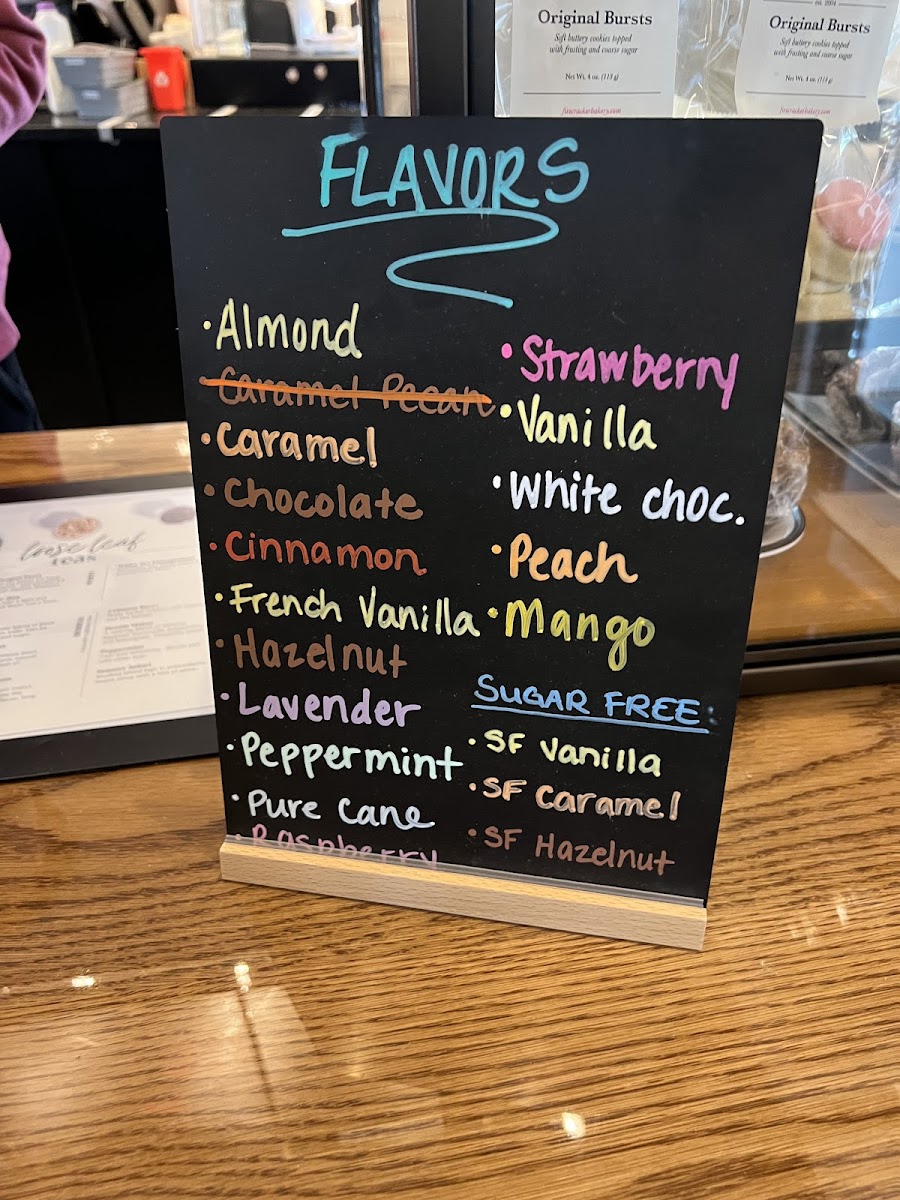 Original Bursts
Soft buttery cookies topped
with frosting and coarse sugar
Net Wt. 4 oz. (113 g)
firecrackerbakery.com
est. 2004
Original Bursts
Soft buttery cookies topped
with frosting and coarse sugar
Net Wt. 4 oz. (113 g)
firecrackerbakery.com
FLAVORS
• Almond
Caramel Pecan
• Caramel
• Chocolate
• Cinnamon
• French Vanilla
• Hazelnut
• Lavender
• Peppermint
• Pure Cane
• Raspberry
• Strawberry
• Vanilla
• White choc.
• Peach
• Mango
SUGAR FREE:
• SF Vanilla
• SF Caramel
• SF Hazelnut
loose leaf
teas